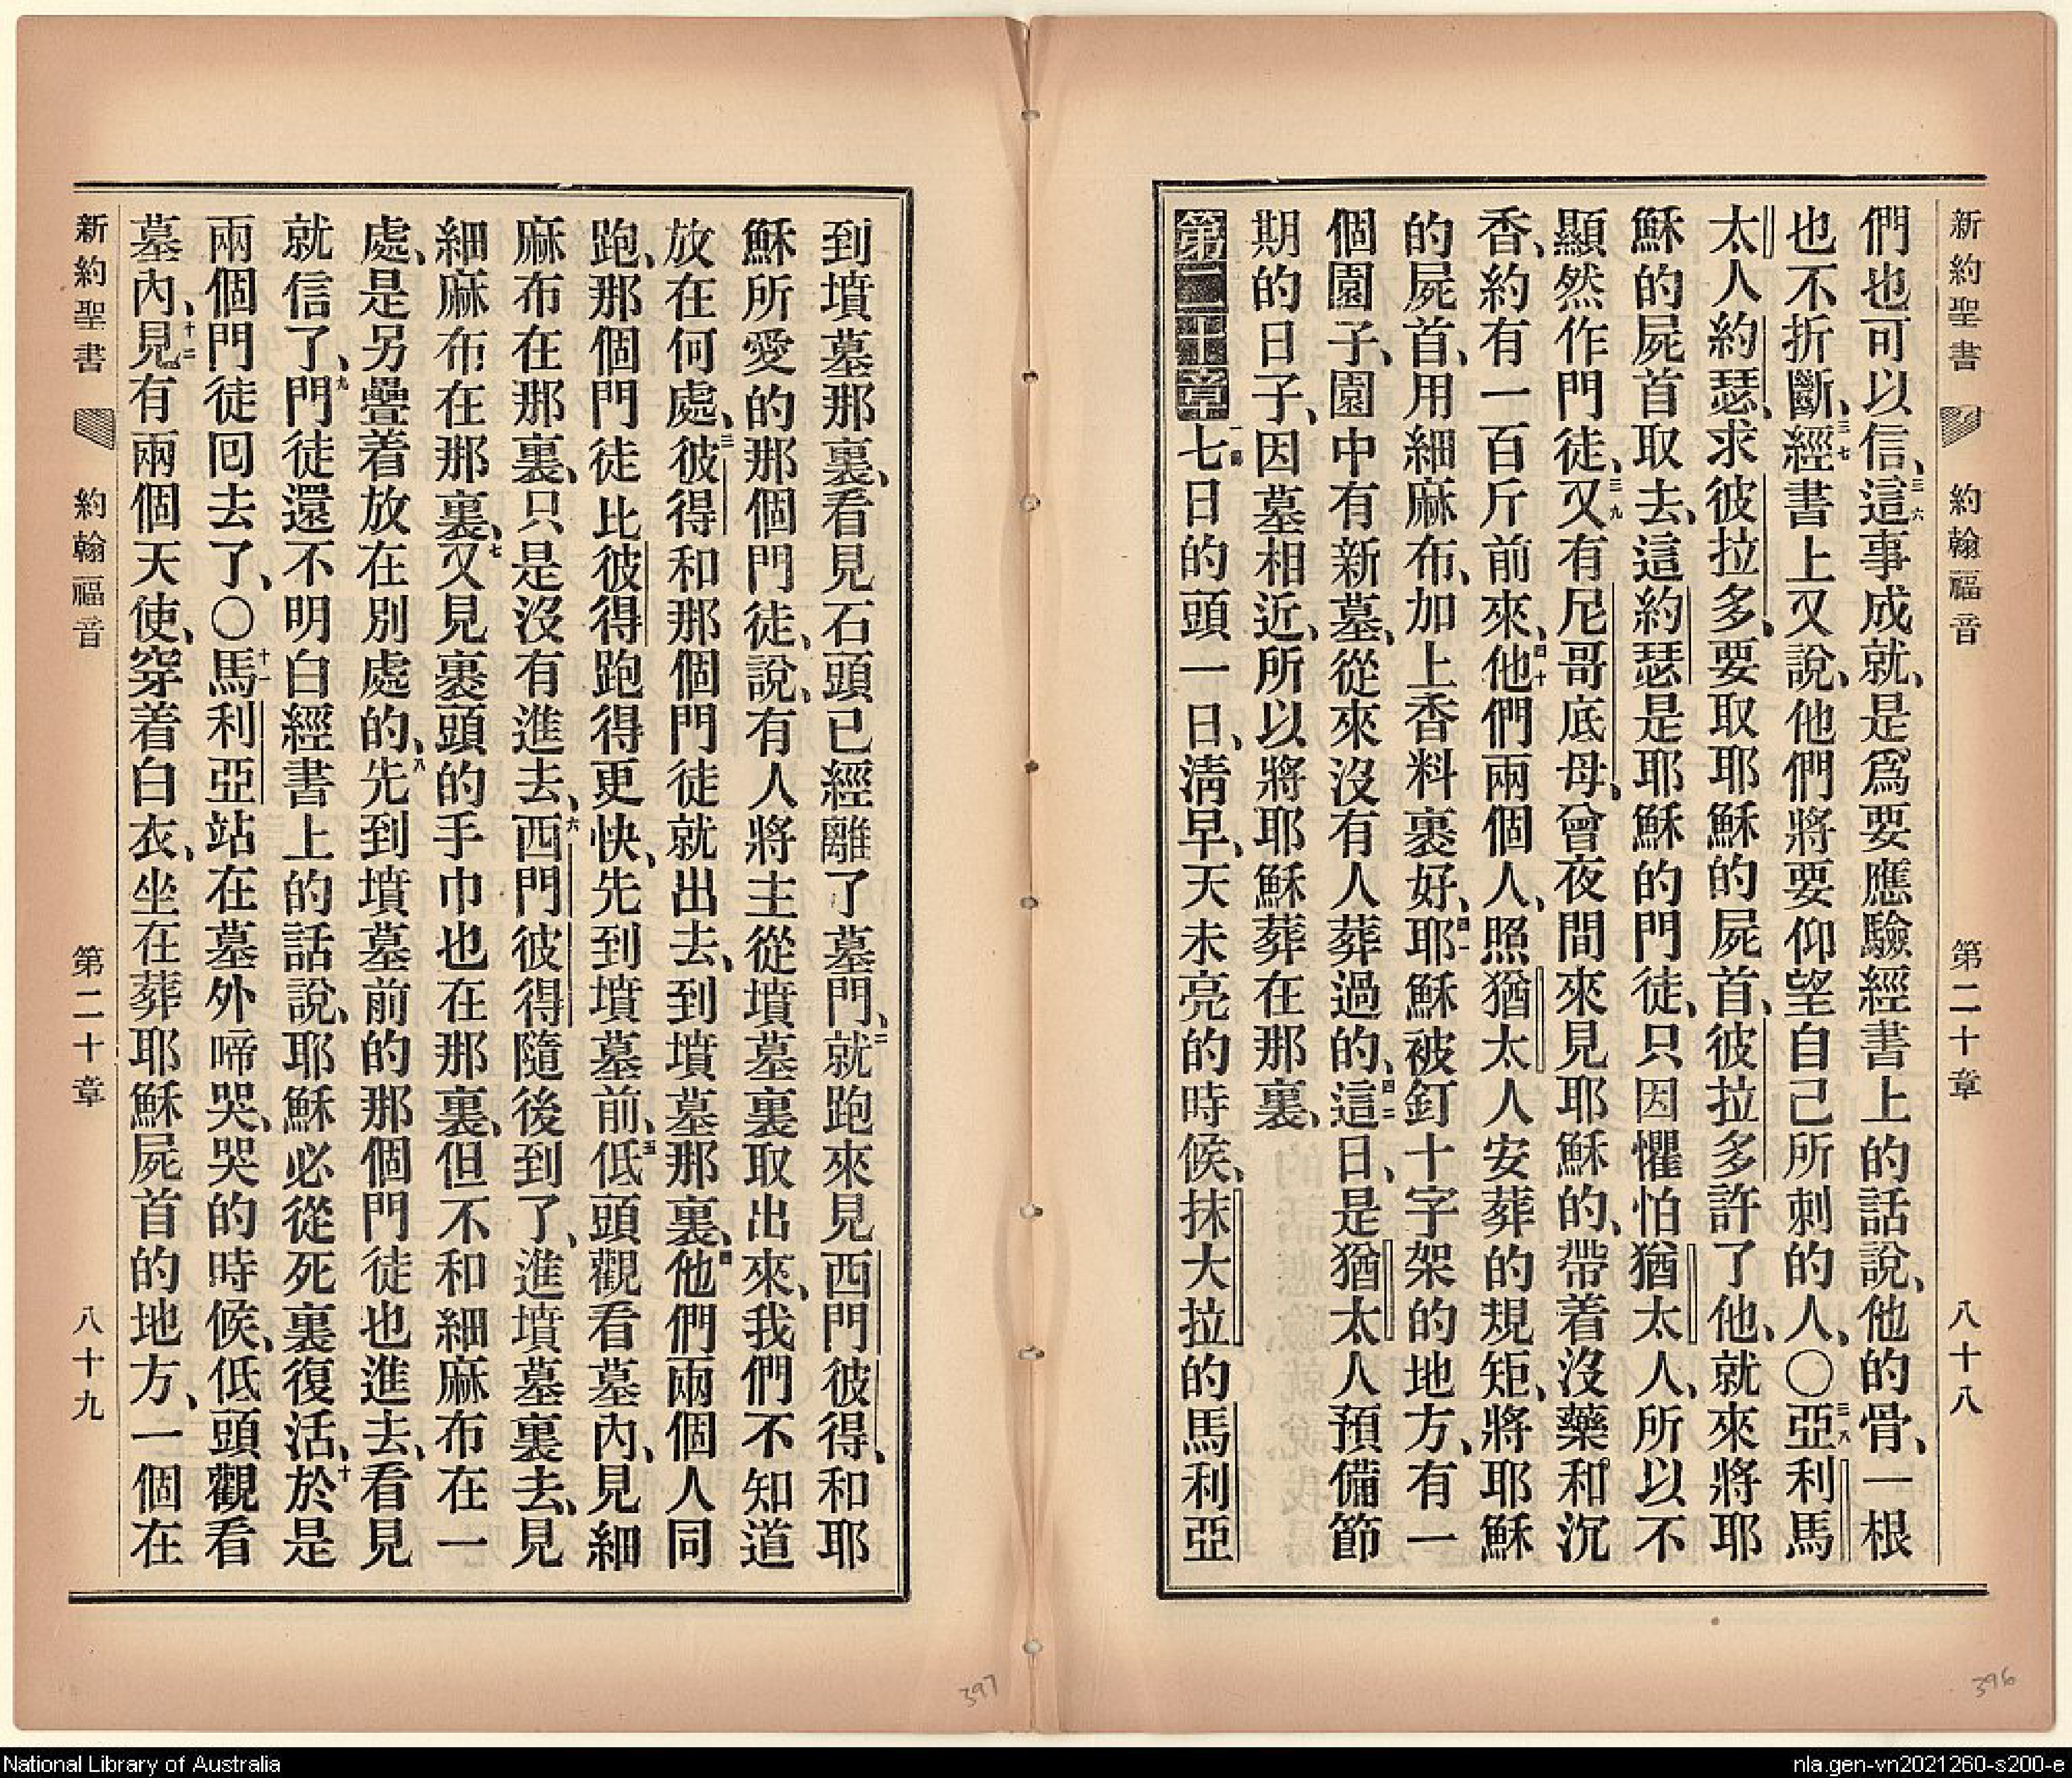 新約聖書 約翰福音 第二十章 八十八
們也可以信、三六這事成就、是爲要應驗經書上的話說、他的骨、一根
也不折斷、三七經書上又說、他們將要仰望自己所刺的人、〇三八亞利馬
太人約瑟、求彼拉多、要取耶穌的屍首、彼拉多許了他、就來將耶
穌的屍首取去、這約瑟是耶穌的門徒、只因懼怕猶太人、所以不
顯然作門徒、三九又有尼哥底母、曾夜間來見耶穌的、帶着沒藥和沉
香、約有一百斤前來、四十他們兩個人、照猶太人安葬的規矩、將耶穌
的屍首、用細麻布、加上香料裹好、四一耶穌被釘十字架的地方、有一
個園子、園中有新墓、從來沒有人葬過的、四二這日、是猶太人預備節
期的日子、因墓相近、所以將耶穌葬在那裏、
第二十章一節七日的頭一日、淸早、天未亮的時候、抹大拉的馬利亞
到墳墓那裏、看見石頭已經離了墓門、二就跑來見西門彼得、和耶
穌所愛的那個門徒、說、有人將主從墳墓裏取出來、我們不知道
放在何處、三彼得和那個門徒就出去、到墳墓那裏、四他們兩個人同
跑、那個門徒比彼得跑得更快、先到墳墓前、五低頭觀看墓內、見細
麻布在那裏、只是沒有進去、六西門彼得隨後到了、進墳墓裏去、見
細麻布在那裏、七又見裹頭的手巾也在那裏、但不和細麻布在一
處、是另疊着放在別處的、八先到墳墓前的那個門徒也進去、看見
就信了、九門徒還不明白經書上的話說、耶穌必從死裏復活、十於是
兩個門徒回去了、〇十一馬利亞站在墓外啼哭、哭的時候、低頭觀看
墓內、十二見有兩個天使、穿着白衣、坐在葬耶穌屍首的地方、一個在
新約聖書 約翰福音 第二十章 八十九
397
396
National Library of Australia
nla.gen-vn2021260-s200-e